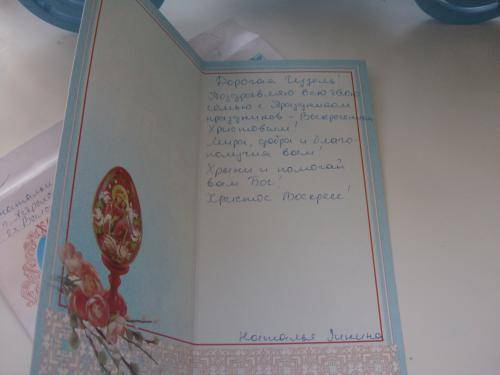 Дорогая Гузель!
Поздравляю всю твою
семью с Праздником
праздников - Воскресением
Христовым!
Мира, добра и благо-
получия вам!
Храни и помогай
вам Бог!
Христос Воскресе!
Наталья